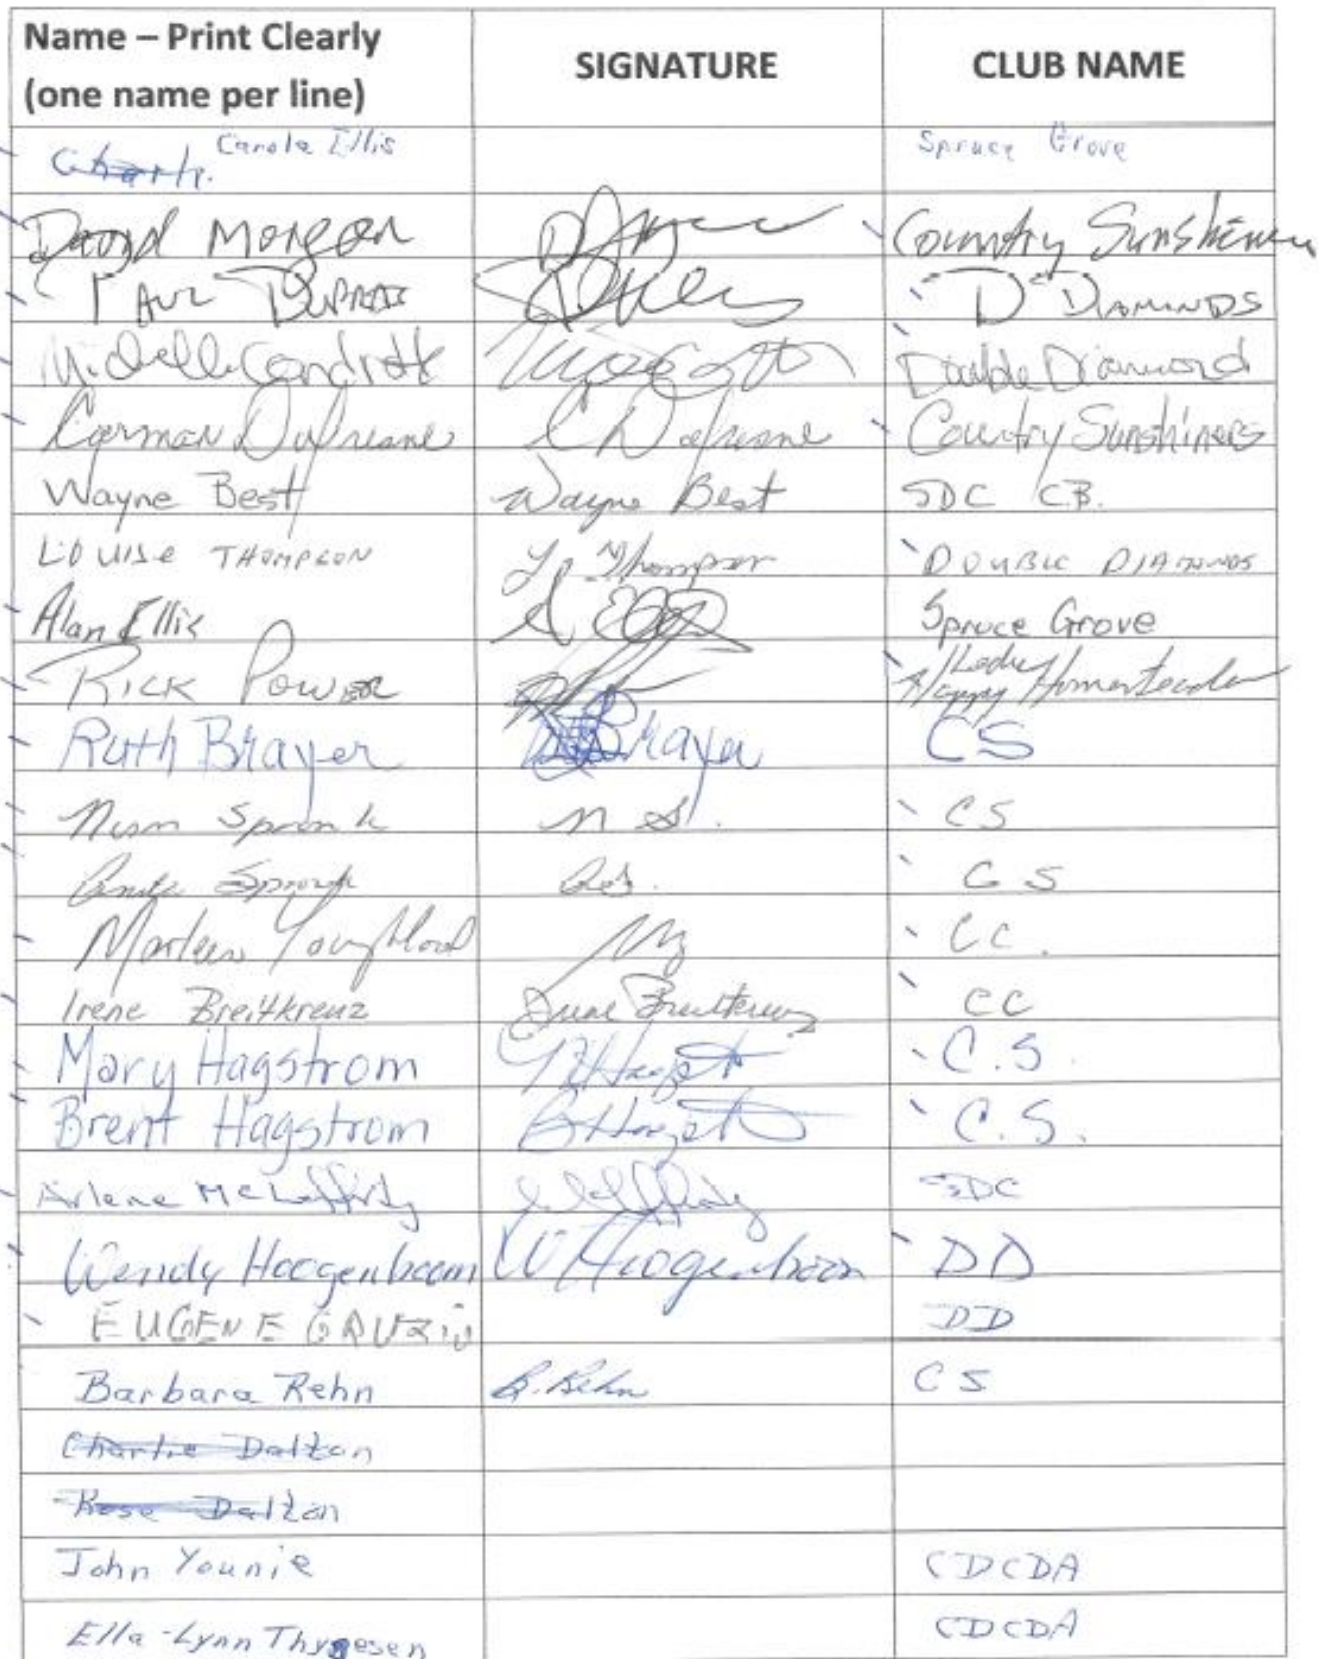 Name – Print Clearly
(one name per line)
SIGNATURE
CLUB NAME
Carole Ellis Spruce Grove
David Morgan Country Sunshiners
PAUL "D" DIAMONDS
Michelle Double Diamond
Carman Dufresne C Dufresne Country Sunshiners
Wayne Best Wayne Best SDC C.B.
LOUISE THOMPSON L Thompson DOUBLE DIAMONDS
Alan Ellis Spruce Grove
RICK POWER Happy Homesteaders
Ruth Brayer Brayer CS
Spronk n S. CS
Spronk CS
Marleen Youngblood CC.
Irene Breitkreuz Irene Breitkreuz CC
Mary Hagstrom C.S.
Brent Hagstrom C.S.
Arlene McLafferty SDC
Wendy Hoogenboom W Hoogenboom DD
EUGENE DD
Barbara Rehn B. Rehn CS
Charlie Dalton
Rose Dalton
John Younie CDCDA
Ella-Lynn Thygesen CDCDA